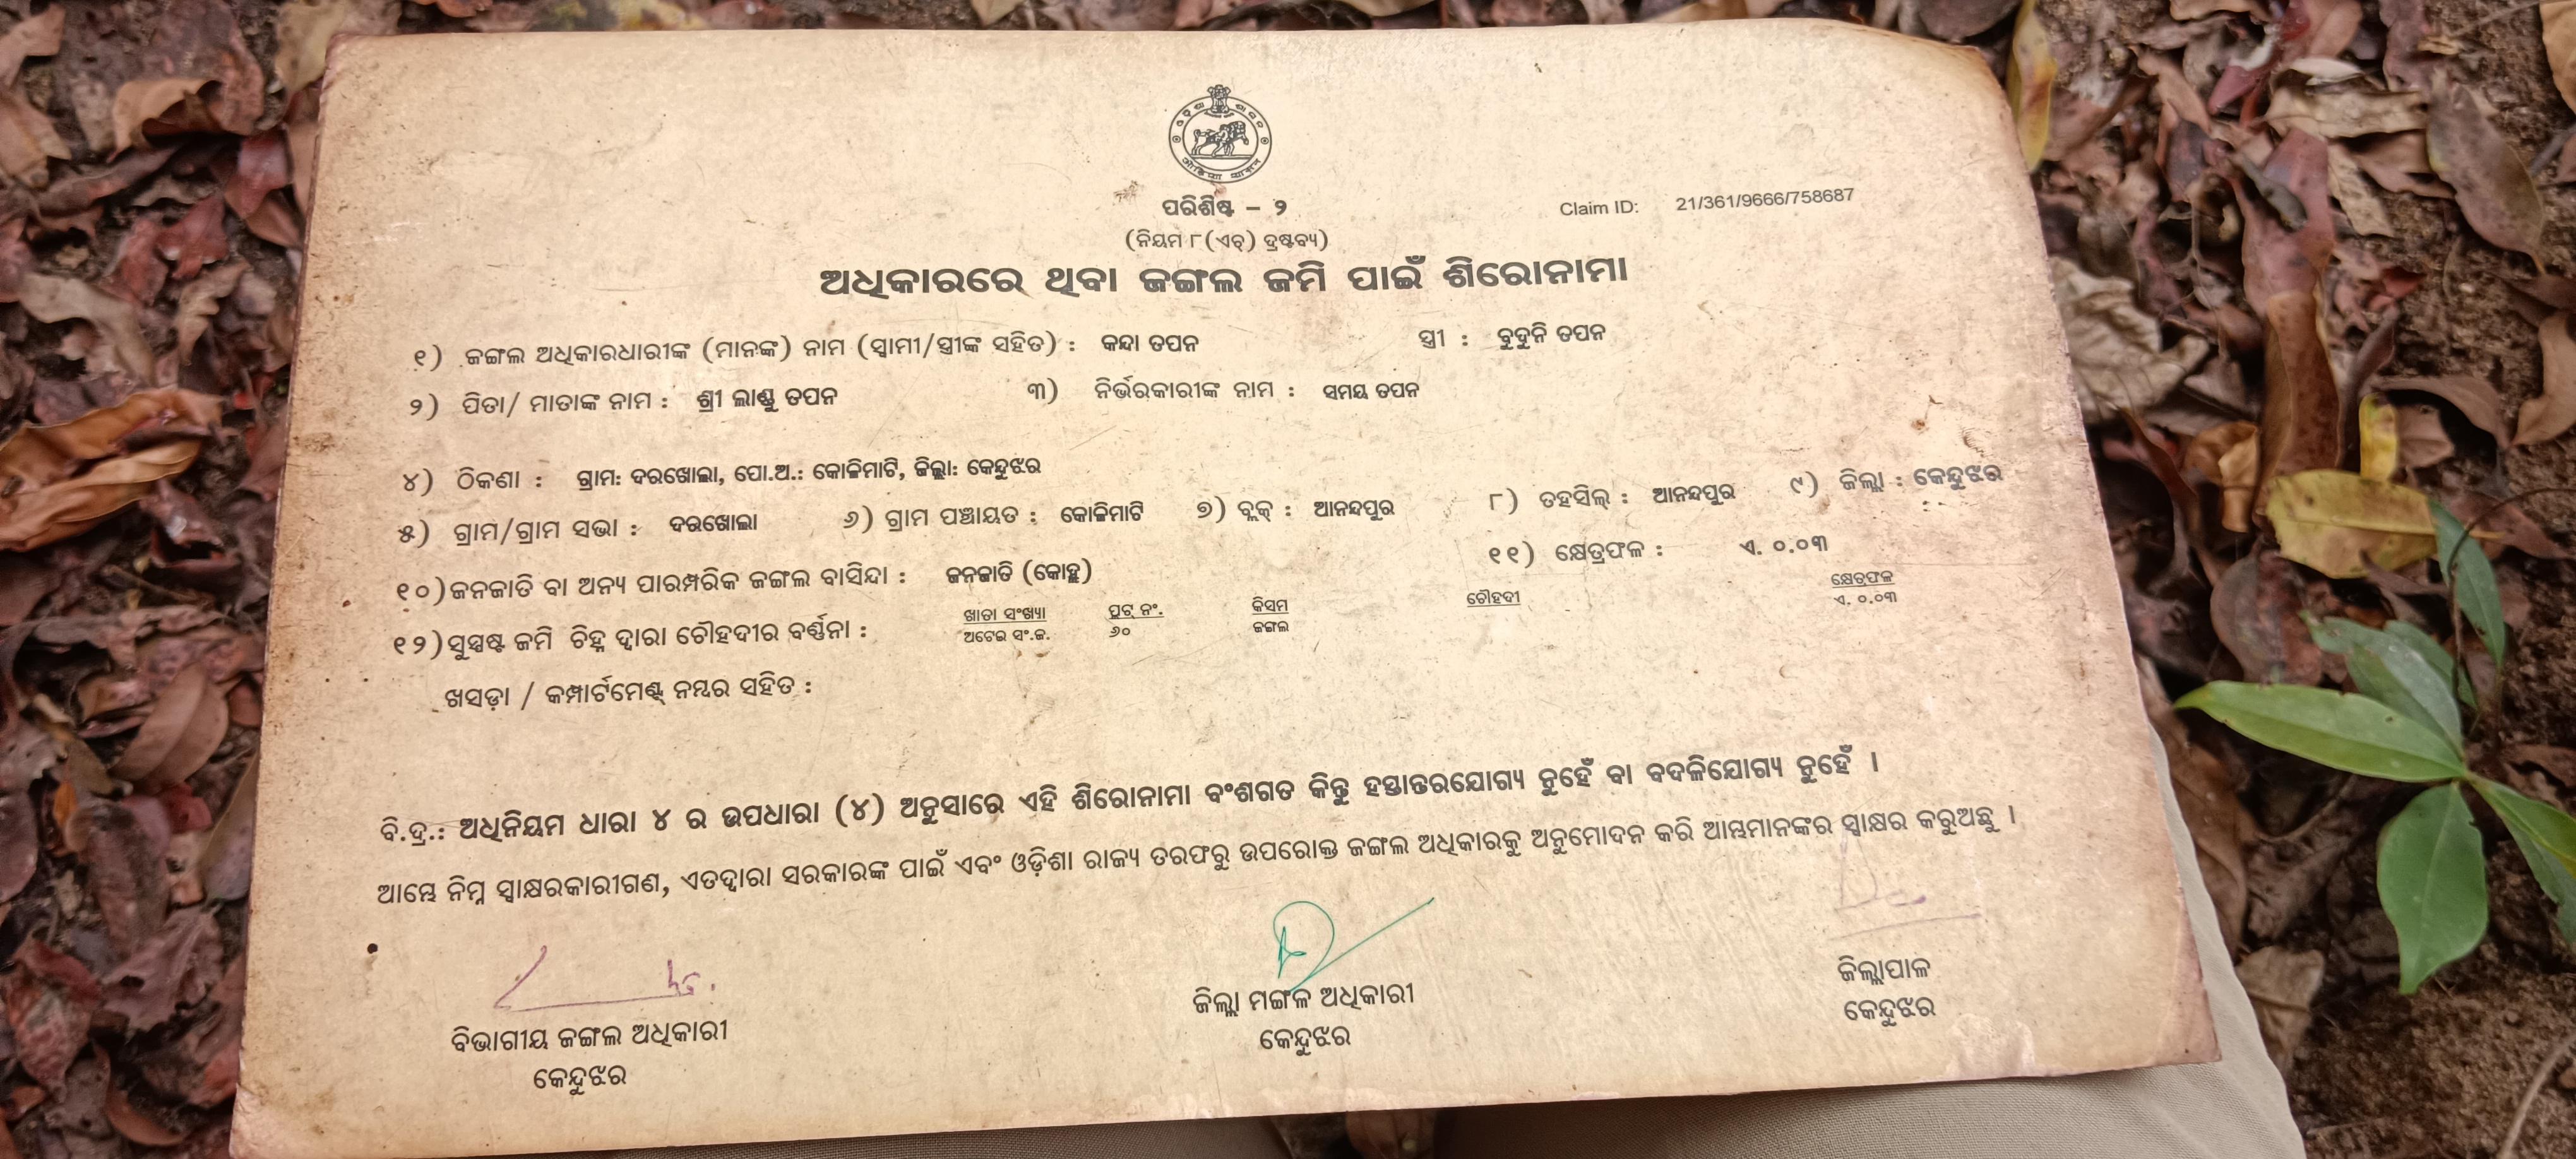 ପରିଶିଷ୍ଟ – ୨
Claim ID: 21/361/9666/758687
(ନିୟମ ୮(ଏଚ୍) ଦ୍ରଷ୍ଟବ୍ୟ)
ଅଧିକାରରେ ଥିବା ଜଙ୍ଗଲ ଜମି ପାଇଁ ଶିରୋନାମା
୧) ଜଙ୍ଗଲ ଅଧିକାରଧାରୀଙ୍କ (ମାନଙ୍କ) ନାମ (ସ୍ୱାମୀ/ସ୍ତ୍ରୀଙ୍କ ସହିତ) : କନ୍ଦା ତପନ ସ୍ତ୍ରୀ : ବୁଦୁନି ତପନ
୨) ପିତା/ ମାତାଙ୍କ ନାମ : ଶ୍ରୀ ଲାଣ୍ଡୁ ତପନ ୩) ନିର୍ଭରକାରୀଙ୍କ ନାମ : ସମୟ ତପନ
୪) ଠିକଣା : ଗ୍ରାମ: ଦରଖୋଲା, ପୋ.ଅ.: କୋଳିମାଟି, ଜିଲ୍ଲା: କେନ୍ଦୁଝର
୫) ଗ୍ରାମ/ଗ୍ରାମ ସଭା : ଦରଖୋଲା ୬) ଗ୍ରାମ ପଞ୍ଚାୟତ : କୋଳିମାଟି ୭) ବ୍ଲକ୍ : ଆନନ୍ଦପୁର ୮) ତହସିଲ୍ : ଆନନ୍ଦପୁର ୯) ଜିଲ୍ଲା : କେନ୍ଦୁଝର
୧୦)ଜନଜାତି ବା ଅନ୍ୟ ପାରମ୍ପରିକ ଜଙ୍ଗଲ ବାସିନ୍ଦା : ଜନଜାତି (କୋହ୍ଲ) ୧୧) କ୍ଷେତ୍ରଫଳ : ଏ. ୦.୦୩
୧୨)ସୁସ୍ପଷ୍ଟ ଜମି ଚିହ୍ନ ଦ୍ୱାରା ଚୌହଦୀର ବର୍ଣ୍ଣନା : ଖାତା ସଂଖ୍ୟା ପ୍ଲଟ୍ ନଂ. କିସମ ଚୌହଦୀ କ୍ଷେତ୍ରଫଳ
ଅଟେଇ ସଂ.ଜ. ୬୦ ଜଙ୍ଗଲ ଏ. ୦.୦୩
ଖସଡ଼ା / କମ୍ପାର୍ଟମେଣ୍ଟ୍ ନମ୍ବର ସହିତ :
ବି.ଦ୍ର.: ଅଧିନିୟମ ଧାରା ୪ ର ଉପଧାରା (୪) ଅନୁସାରେ ଏହି ଶିରୋନାମା ବଂଶଗତ କିନ୍ତୁ ହସ୍ତାନ୍ତରଯୋଗ୍ୟ ନୁହେଁ ବା ବଦଳିଯୋଗ୍ୟ ନୁହେଁ ।
ଆମ୍ଭେ ନିମ୍ନ ସ୍ୱାକ୍ଷରକାରୀଗଣ, ଏତଦ୍ଦ୍ୱାରା ସରକାରଙ୍କ ପାଇଁ ଏବଂ ଓଡ଼ିଶା ରାଜ୍ୟ ତରଫରୁ ଉପରୋକ୍ତ ଜଙ୍ଗଲ ଅଧିକାରକୁ ଅନୁମୋଦନ କରି ଆମ୍ଭମାନଙ୍କର ସ୍ୱାକ୍ଷର କରୁଅଛୁ ।
ବିଭାଗୀୟ ଜଙ୍ଗଲ ଅଧିକାରୀ
କେନ୍ଦୁଝର
ଜିଲ୍ଲା ମଙ୍ଗଳ ଅଧିକାରୀ
କେନ୍ଦୁଝର
ଜିଲ୍ଲାପାଳ
କେନ୍ଦୁଝର